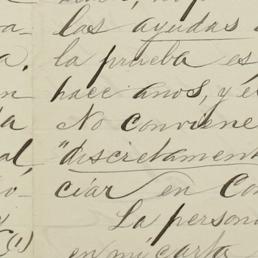 los ayudas
a. la prueba es
n hace anos, y e
a No conviene
al, "discretament
io- ciar en Con
y La person
(1) en mi carta